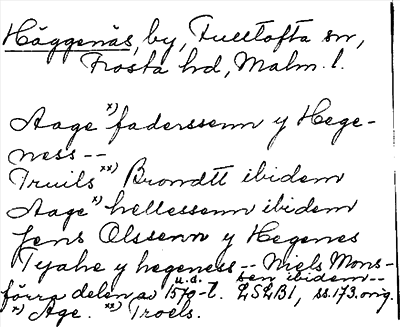 Häggenäs, by, Fulltofta sn,
Frosta hd, Malm. l.
Aage x) faderssenn y Hege-
ness --
Truils xx) Brondtt ibidem
Aage x) hellessenn ibidem
Jens Olssenn y Hegenes
Tyahe y hegeness -- Niels Mons-
sen ibidem --
förra delen av 1570-t. u.a. LSLB1, ss. 173. orig.
x) Age. xx) Troels.